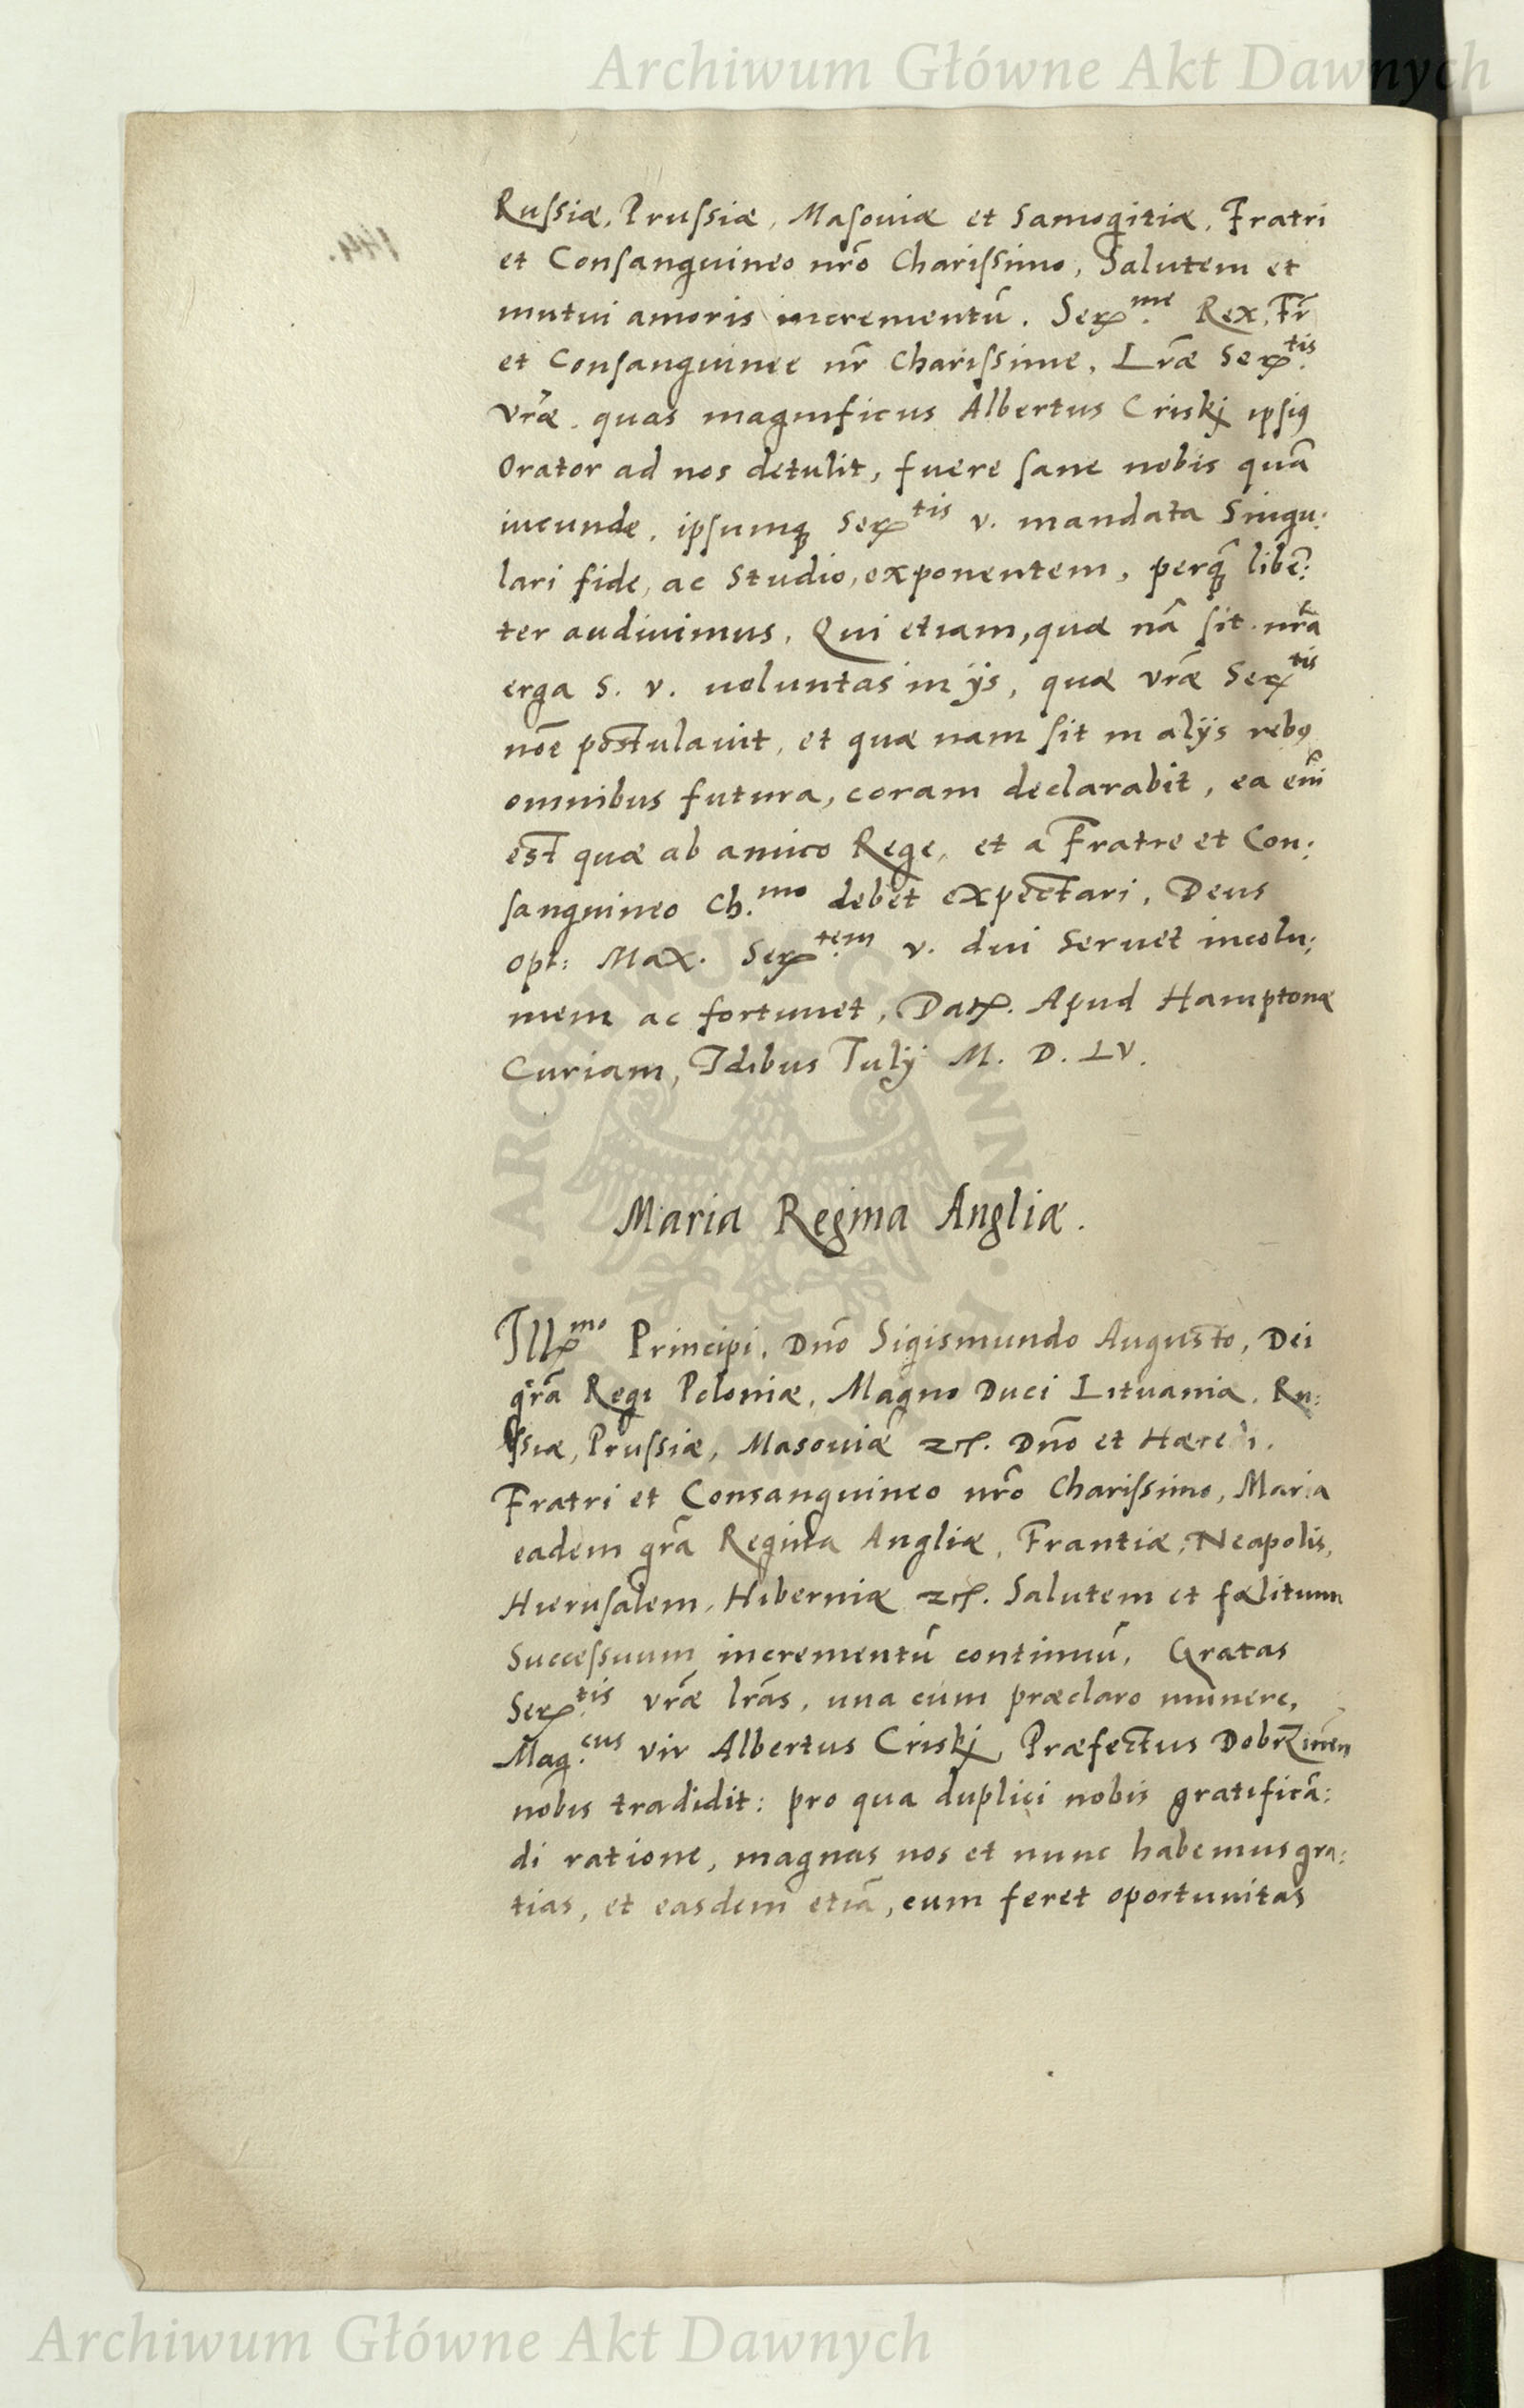 Archiwum Główne Akt Dawnych
Russiæ, Prussiæ, Masouiæ et Samogitiæ, Fratri
et Consanguineo nrõ Charissimo, Salutem et
mutui amoris incrementũ. Ser.me Rex, Fr̃
et Consanguinee nr̃ Charissime, Lr̃æ Ser.tis
Vr̃æ, quas magnificus Albertus Criskj ipsiꝰ
Orator ad nos detulit, fuere sane nobis quã
iucunde, ipsumqꝫ Ser.tis v. mandata Singu:
lari fide, ac Studio, exponentem, perqꝫ̃ libẽ:
ter audiuimus, Qui etiam, quæ nã sit nr̃a
erga S. v. uoluntas in ijs, quæ vr̃æ Ser.tis
noẽ postulauit, et quæ nam sit in alijs rebꝰ
omnibus futura, coram declarabit, ea em̃
est quæ ab amico Rege, et a Fratre et Con:
sanguineo Ch.mo debet expectari, Deus
Opt: Max. Ser.tem v. diu Seruet incolu:
mem ac fortunet, Dat. Apud Hamptonæ
Curiam, Idibus Iulij M. D. LV.
Maria Regina Angliæ.
Ill.mo Principi, Dnõ Sigismundo Augusto, Dei
gr̃a Regi Poloniæ, Magno Duci Lituaniæ, Ru:
ssiæ, Prussiæ, Masouiæ zc. Dnõ et Hæredi,
Fratri et Consanguineo nrõ Charissimo, Maria
eadem gr̃a Regina Angliæ, Frantiæ, Neapolis,
Hierusalem, Hiberniæ zc. Salutem et fœlitium
Successuum incrementũ continuũ, Gratas
Ser.tis vr̃æ lr̃as, una cum præclaro munere,
Mag.cus vir Albertus Criskj, Præfectus Dobrzinẽn
nobis tradidit: pro qua duplici nobis gratificã:
di ratione, magnas nos et nunc habemus gra:
tias, et easdem etiã, cum feret oportunitas
Archiwum Główne Akt Dawnych